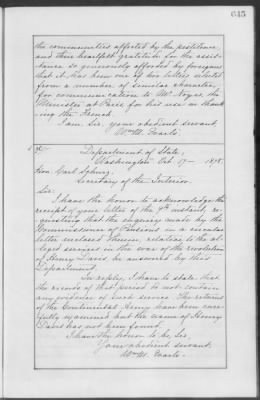 645
the communities afflicted by the pestilence,
and their heartfelt gratitude for the assist-
ance so generously afforded by foreigners
that it has been one of two letters selected
from a number of similar character,
for communication to Mr Noyes the
Minister at Paris for his use in thank-
ing the French.
I am Sir, your obedient servant,
Wm M. Evarts.
Department of State,
Washington Oct. 17 — 1878.
Hon. Carl Schurz,
Secretary of the Interior.
Sir:
I have the honor to acknowledge the
receipt of your letter of the 9th instant, re-
questing that the inquiry made by the
Commissioner of Pensions in a circular
letter enclosed therein, relative to the al-
leged services in the war of the revolution
of Henry Davis, be answered by this
Department.
In reply, I have to state that
the records of that period do not contain
any evidence of such service. The returns
of the Continental Army have been care-
fully examined but the name of Henry
Davis has not been found.
I have the honor to be, Sir,
Your obedient servant,
Wm M. Evarts.